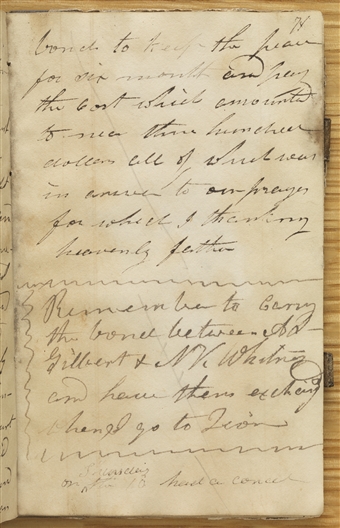 78
bond to keep the peace
for six month and pay
the cost which amounted
to nea three hundred
dollars all of which was
in answer to our prayer
for which I thank my
heavenly father
Remember to carry
the bond between A S
Gilbert & N K Whitney
and have them exchang
when I go to Zion
on the 18 had a concer